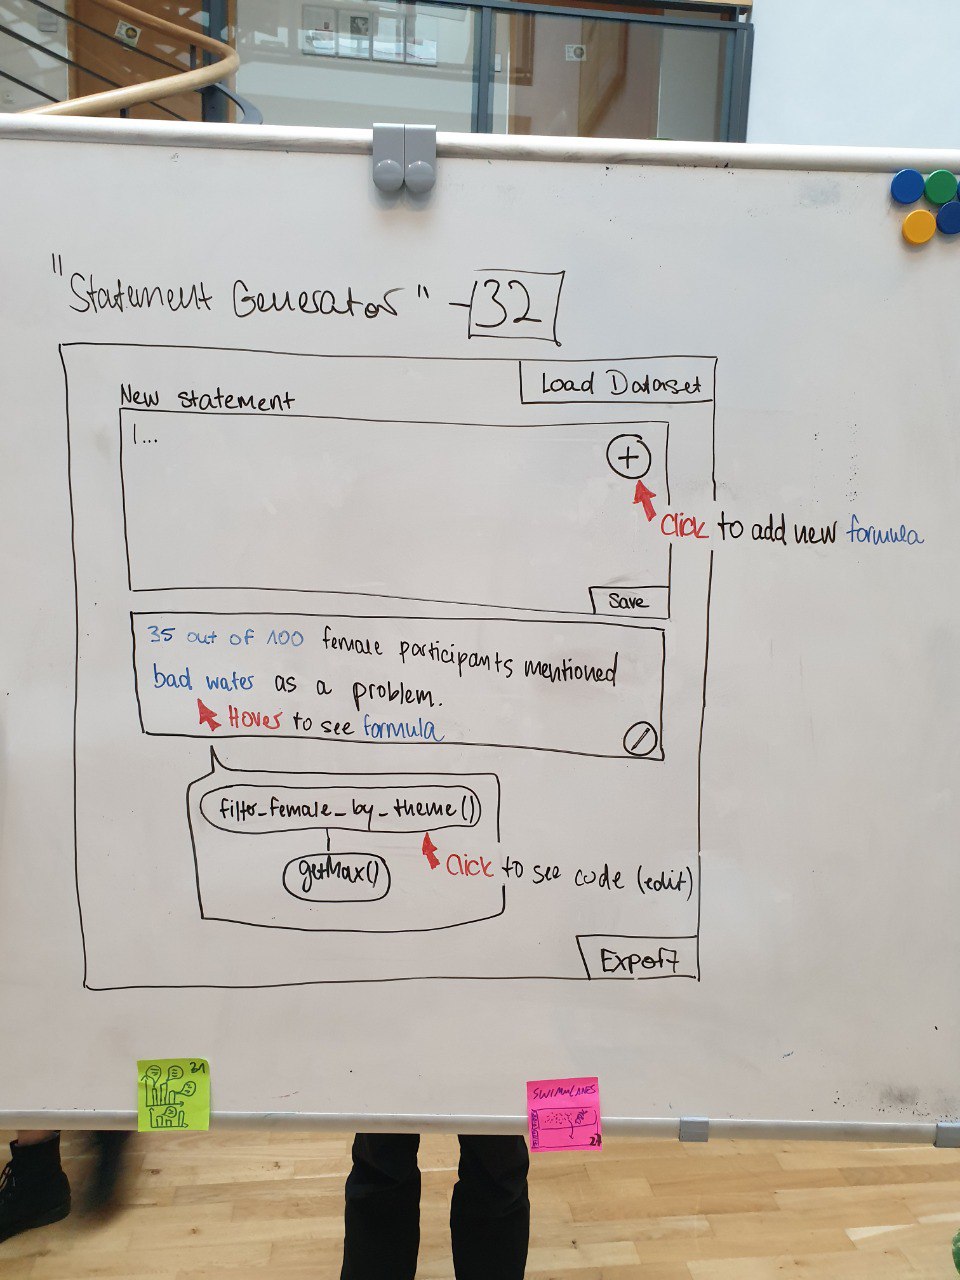 "Statement Generator" - 32
Load Dataset
New statement
|...
+
Click to add new formula
Save
35 out of 100 female participants mentioned
bad water as a problem.
Hover to see formula
filter_female_by_theme()
getMax()
Click to see code (edit)
Export
SWIMLANES
27